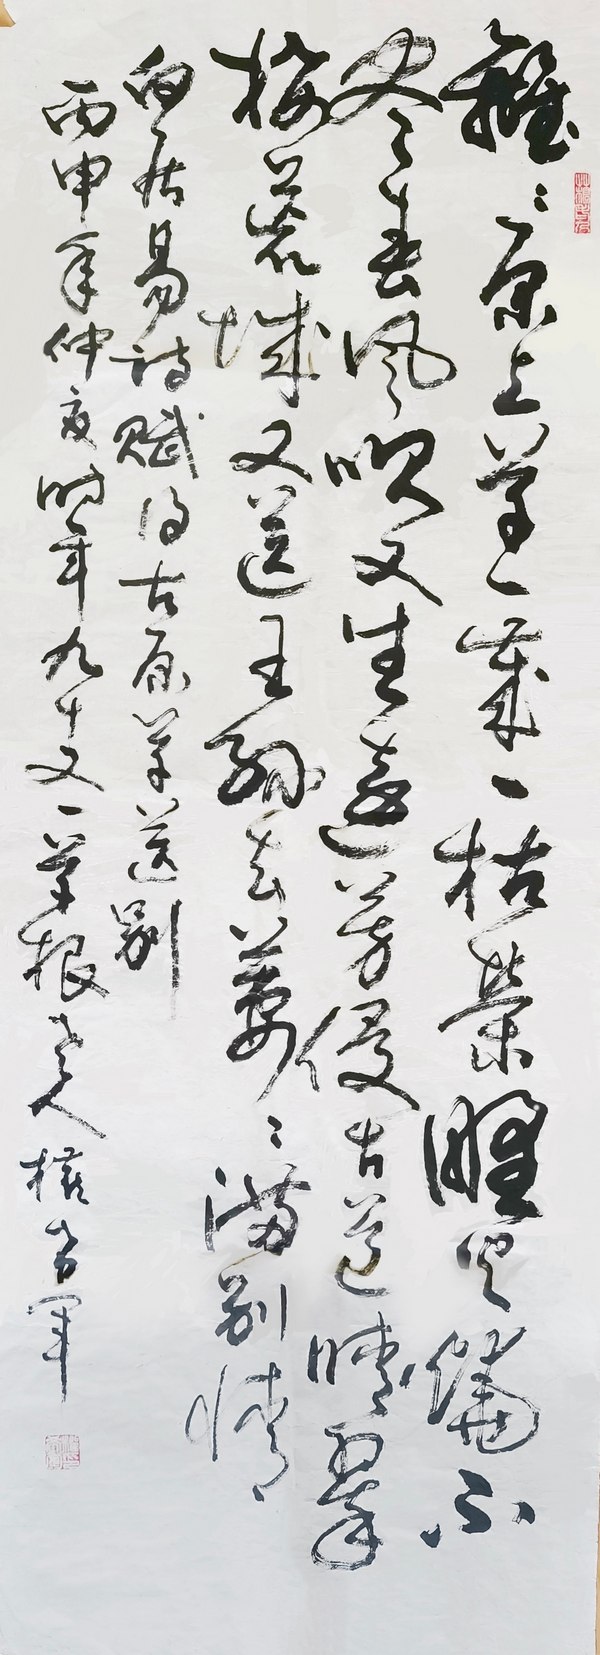 離々原上草一歲一枯榮野火燒不
尽春風吹又生遠芳侵古道晴翠
接荒城又送王孫去萋々滿別情
白居易詩賦得古原草送別
丙申年仲夏时年九十又一草根老人權希軍